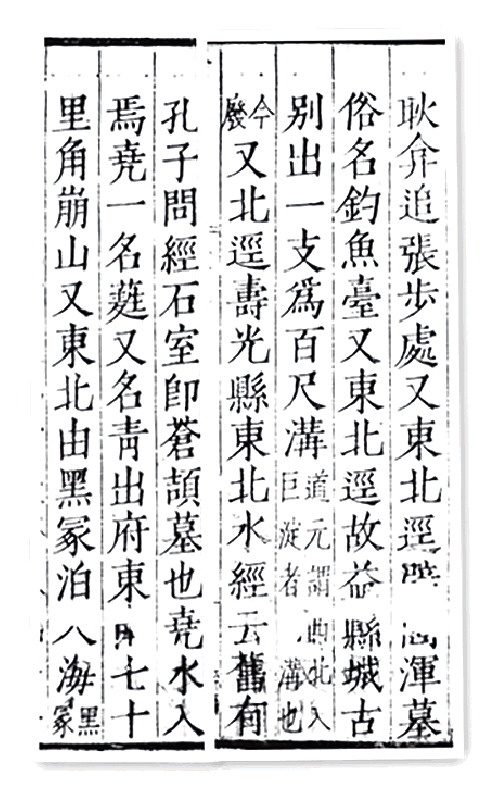 耿弇追張步處又東北逕渾墓
俗名釣魚臺又東北逕故益縣城古
别出一支爲百尺溝道元謂西北入巨淀者溝也
今廢又北逕壽光縣東北水經云舊有
孔子問經石室卽蒼頡墓也堯水入
焉堯一名蕤又名青出府東七十
里角崩山又東北由黑冢泊入海黑冢